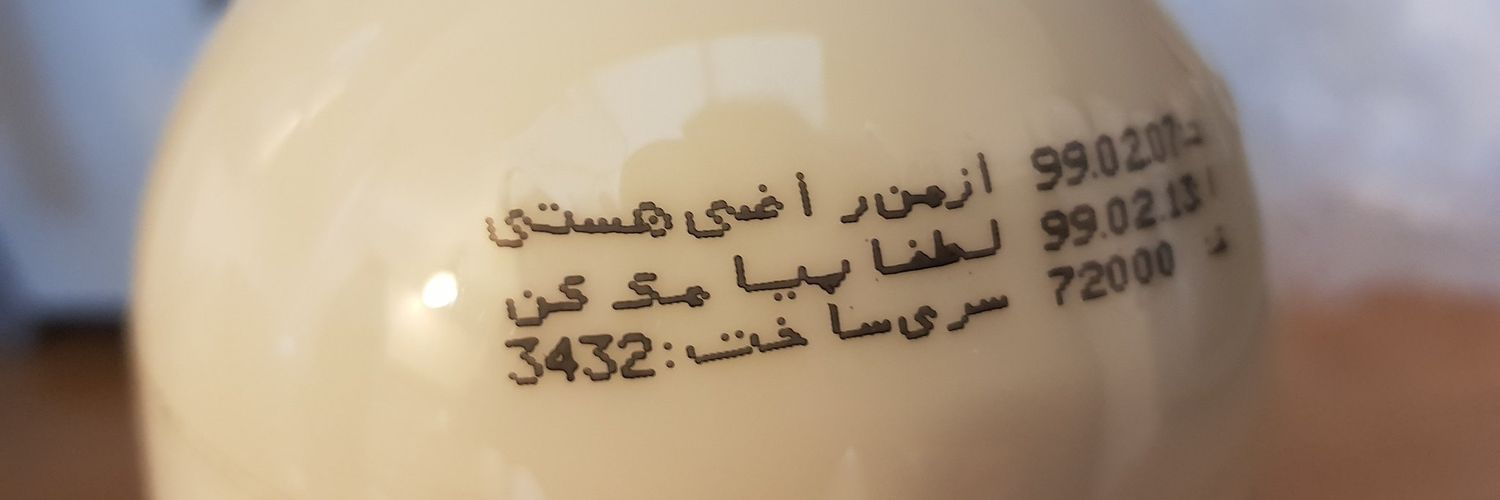 99.02.07 ازمن راضی هستی
99.02.13 لطفا پیامک کن
72000 سری ساخت:3432